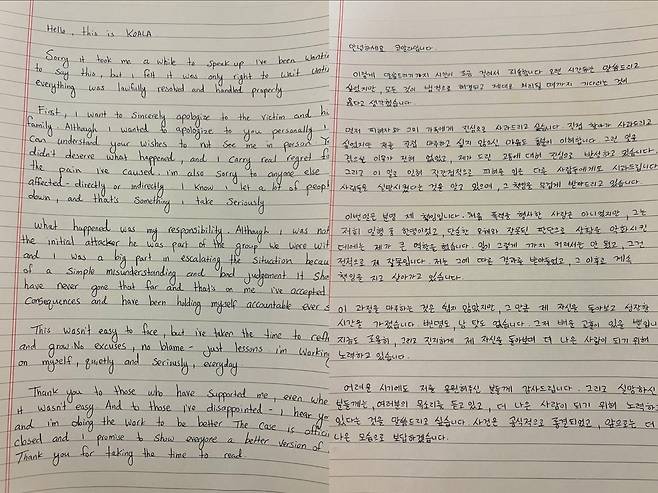 Hello, this is KOALA
Sorry it took me a while to speak up I've been wantin
to say this, but i felt it was only right to wait until
everything was lawfully resolved and handled properly
First, I want to Sincerely apologize to the victim and hi
family. Although I wanted to apologize to you personally I
Can understand your wishes to not see me in person Yo
didn't deserve what happened, and I carry real regret f
the pain i've caused. i'm also Sorry to anyone else
affected - directly or indirectly. I know I let a lot of people
down, and that's Something i take Seriously
What happened was my responsibility. Although I was no
the initial attacker he was part of the group we were wit
and I was a big part in escalating the Situation becau
of a Simple misunderstanding and bad judgement It Sho
have never gone that far and that's on me i've accepted
Consequences and have been holding myself accountable ever s
This wasn't easy to face, but i've taken the time to refle
and grow. No excuses, no blame - just lessons i'm workin
on myself, quietly and Seriously, everyday
Thank you to those who have Supported me, even whe
it wasn't easy And to those i've disappointed - I hear yo
and i'm doing the work to be better The Case is offic
closed and I promise to show everyone a better version of
Thank you for taking the time to read
안녕하세요 코알라입니다.
이렇게 말씀드리기까지 시간이 조금 걸려서 죄송합니다 오랜 시간동안 말씀드리고
싶었지만, 모든 것이 법적으로 해결되고 제대로 처리될 때까지 기다리는 것이
옳다고 생각했습니다.
먼저 피해자와 그의 가족에게 진심으로 사과드리고 싶습니다 직접 찾아가 사과드리고
싶었지만 저를 직접 마주하고 싶지 않으신 마음도 충분히 이해합니다 그런 일을
겪으실 이유가 전혀 없었고, 제가 드린 고통에 대해 진심으로 반성하고 있습니다.
그리고 이 일로 인해 직간접적으로 피해를 입은 다른 사람들에게도 사과드립니다
사람들을 실망시켰다는 것을 알고 있으며, 그 책임을 무겁게 받아드리고 있습니다
이번일은 분명 제 책임입니다. 처음 폭력을 행사한 사람은 아니었지만, 그는
저희 일행 중 한명이었고, 단순한 오해와 잘못된 판단으로 상황을 악화시킨
데에는 제가 큰 역할을 했습니다. 일이 그렇게 까지 커져서는 안 됐고, 그건
전적으로 제 잘못입니다. 저는 그에 따른 결과를 받아들였고, 그 이후로 계속
책임을 지고 살아가고 있습니다.
이 과정을 마주하는 것은 쉽지 않았지만, 그 만큼 제 자신을 돌아보고 성장할
시간을 가졌습니다. 변명도, 남 탓도 없습니다. 그저 배울 교훈이 있을 뿐입니
지금도 조용히, 그리고 진지하게 제 자신을 돌아보며 더 나은 사람이 되기 위해
노력하고 있습니다.
어려울 시기에도 저를 응원해주신 분들께 감사드립니다. 그리고 실망하신
분들께는, 여러분의 목소리를 듣고 있고, 더 나은 사람이 되기 위해 노력하고
있다는 것을 말씀드리고 싶습니다. 사건은 공식적으로 종결되었고, 앞으로는 더
나은 모습으로 보답하겠습니다.